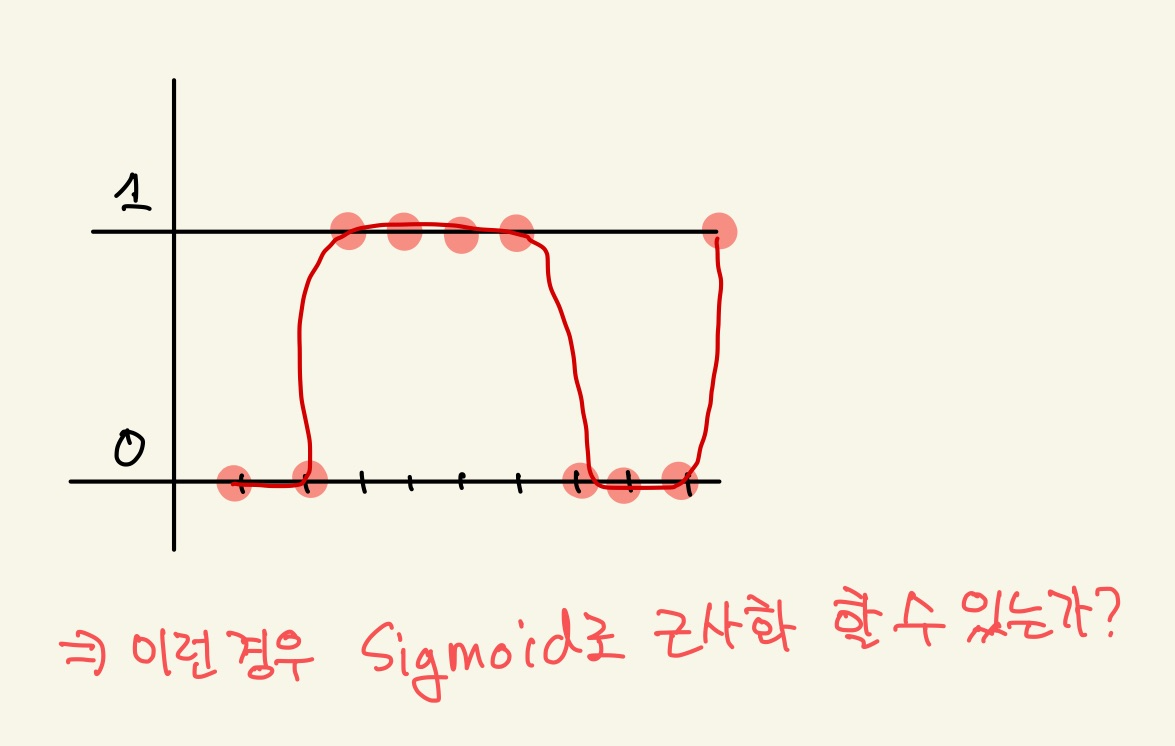 1
0
⇒ 이런경우 Sigmoid로 근사화 할 수 있는가?